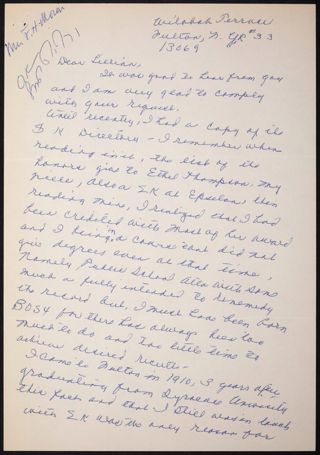 Wilobob Terrace
Fulton, N. Y. R #3
13069
Mrs. F. H.
Dear Lillian,
It was good to hear from you
and I am very glad to comply
with your request.
Until recently, I had a copy of the
S K Directory - I remember when
reading in it, the list of the
honors give to Ethel Thompson my
niece, also a S K at Epsilon, then
reading mine, I realized that I had
been credited with most of her award
and I being in a course that did not
give degrees even at that time,
Namely Public School Art with some
much a fully intended to remedy
the record but, I must have been born
BUSY for there has always been too
much to do and too little time to
achieve desired results -
I came to Fulton in 1910, 3 years after
graduating from Syracuse University
this fact and that I still was in touch
with S K was the only reason for